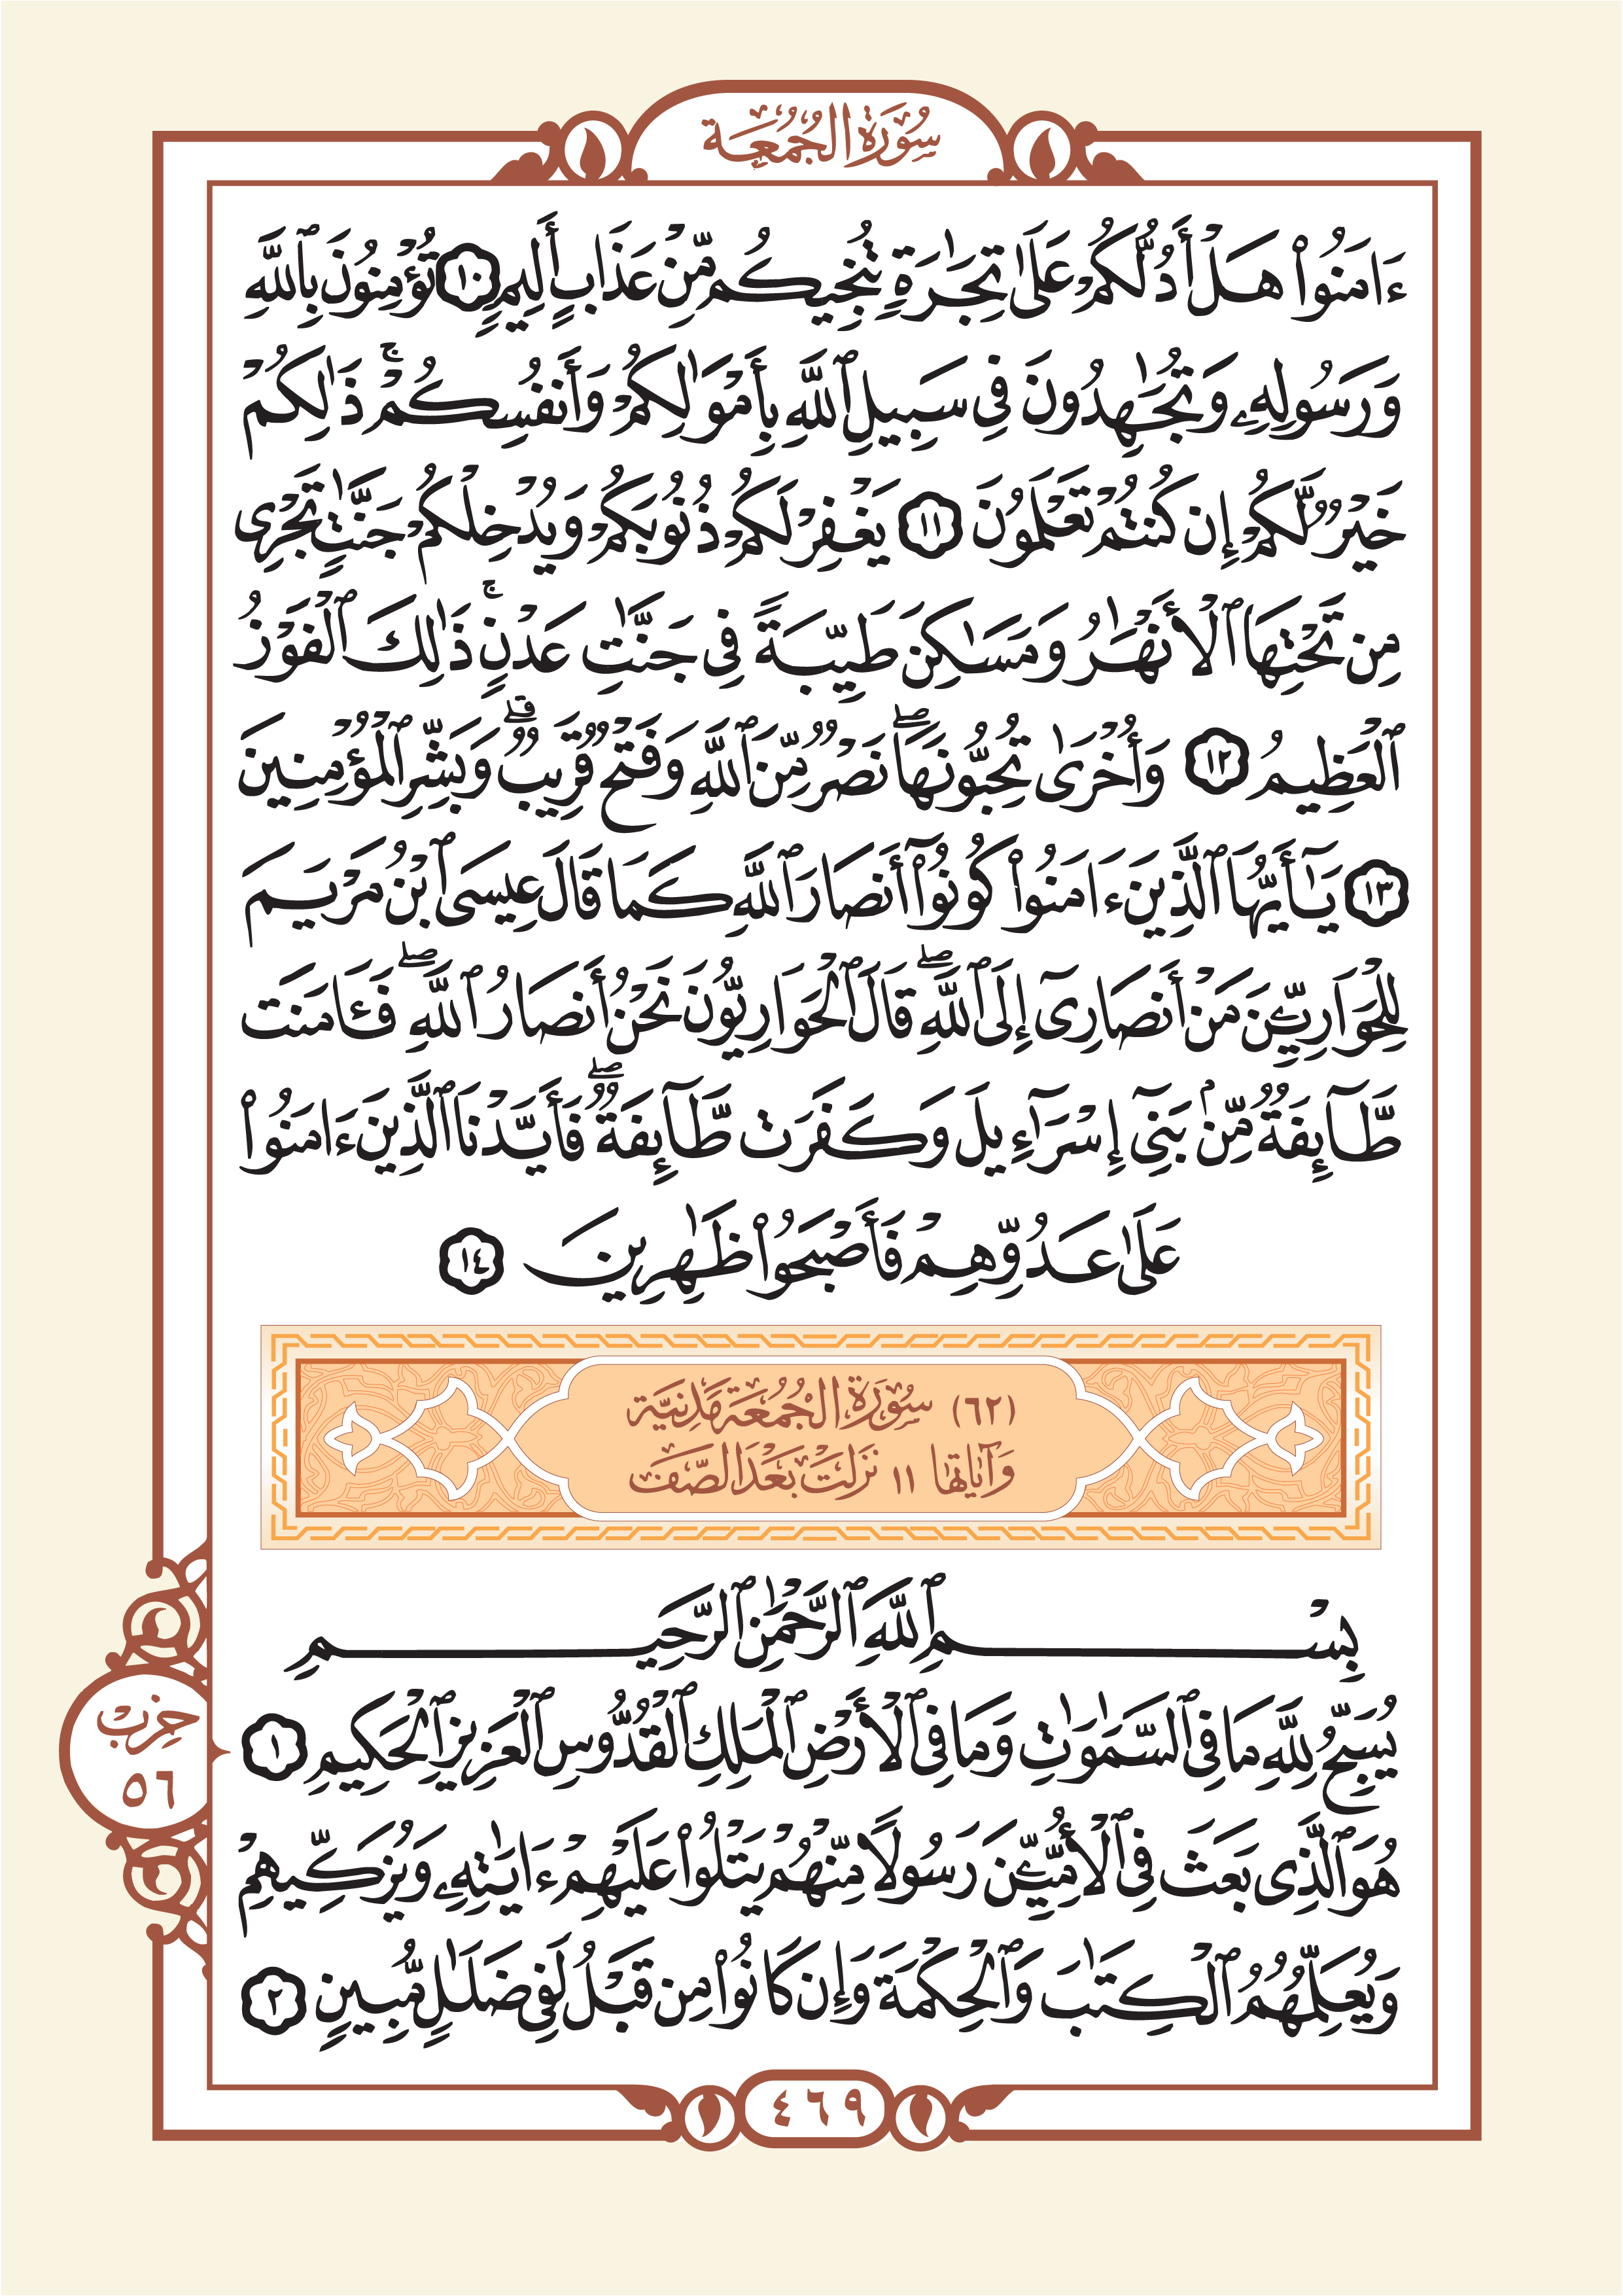 سُورَةُ الْجُمُعَة
ءَامَنُوا۟ هَلْ أَدُلُّكُمْ عَلَىٰ تِجَٰرَةٍ تُنجِيكُم مِّنْ عَذَابٍ أَلِيمٍ ١٠ تُؤْمِنُونَ بِٱللَّهِ
وَرَسُولِهِۦ وَتُجَٰهِدُونَ فِى سَبِيلِ ٱللَّهِ بِأَمْوَٰلِكُمْ وَأَنفُسِكُمْ ۚ ذَٰلِكُمْ
خَيْرٌ لَّكُمْ إِن كُنتُمْ تَعْلَمُونَ ١١ يَغْفِرْ لَكُمْ ذُنُوبَكُمْ وَيُدْخِلْكُمْ جَنَّٰتٍ تَجْرِى
مِن تَحْتِهَا ٱلْأَنْهَٰرُ وَمَسَٰكِنَ طَيِّبَةً فِى جَنَّٰتِ عَدْنٍ ۚ ذَٰلِكَ ٱلْفَوْزُ
ٱلْعَظِيمُ ١٢ وَأُخْرَىٰ تُحِبُّونَهَا ۖ نَصْرٌ مِّنَ ٱللَّهِ وَفَتْحٌ قَرِيبٌ ۗ وَبَشِّرِ ٱلْمُؤْمِنِينَ
١٣ يَٰٓأَيُّهَا ٱلَّذِينَ ءَامَنُوا۟ كُونُوٓا۟ أَنصَارَ ٱللَّهِ كَمَا قَالَ عِيسَى ٱبْنُ مَرْيَمَ
لِلْحَوَارِيِّۦنَ مَنْ أَنصَارِىٓ إِلَى ٱللَّهِ ۖ قَالَ ٱلْحَوَارِيُّونَ نَحْنُ أَنصَارُ ٱللَّهِ ۖ فَـَٔامَنَت
طَّآئِفَةٌ مِّنۢ بَنِىٓ إِسْرَٰٓءِيلَ وَكَفَرَت طَّآئِفَةٌ ۖ فَأَيَّدْنَا ٱلَّذِينَ ءَامَنُوا۟
عَلَىٰ عَدُوِّهِمْ فَأَصْبَحُوا۟ ظَٰهِرِينَ ١٤
(٦٢) سُورَةُ الْجُمُعَة مَدَنِيَّة
وَآيَاتُهَا ١١ نَزَلَتْ بَعْدَ الصَّف
بِسْمِ ٱللَّهِ ٱلرَّحْمَٰنِ ٱلرَّحِيمِ
يُسَبِّحُ لِلَّهِ مَا فِى ٱلسَّمَٰوَٰتِ وَمَا فِى ٱلْأَرْضِ ٱلْمَلِكِ ٱلْقُدُّوسِ ٱلْعَزِيزِ ٱلْحَكِيمِ ١
حِزْب
٥٦
هُوَ ٱلَّذِى بَعَثَ فِى ٱلْأُمِّيِّۦنَ رَسُولًا مِّنْهُمْ يَتْلُوا۟ عَلَيْهِمْ ءَايَٰتِهِۦ وَيُزَكِّيهِمْ
وَيُعَلِّمُهُمُ ٱلْكِتَٰبَ وَٱلْحِكْمَةَ وَإِن كَانُوا۟ مِن قَبْلُ لَفِى ضَلَٰلٍ مُّبِينٍ ٢
٤٦٩